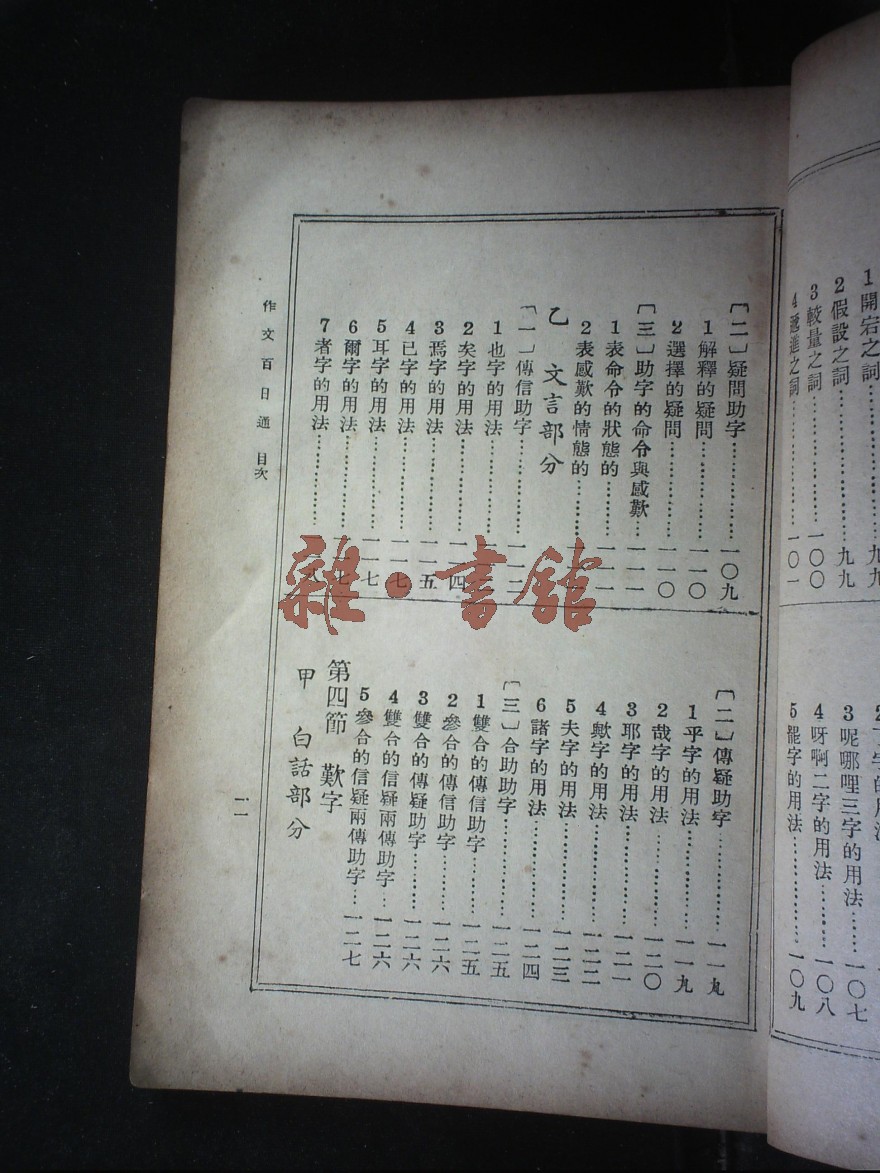 1開宕之詞……九九
2假設之詞……九九
3較量之詞……一〇〇
4遞進之詞……一〇一
3呢哪哩三字的用法……一〇七
4呀啊二字的用法……一〇八
5罷字的用法……一〇九
〔二〕疑問助字……一〇九
1解釋的疑問……一一〇
2選擇的疑問……一一〇
〔三〕助字的命令與感歎……一一一
1表命令的狀態的……一一一
2表感歎的情態的……
乙 文言部分
〔一〕傳信助字……
1也字的用法……
2矣字的用法……一一四
3焉字的用法……一一五
4已字的用法……一一七
5耳字的用法……一一七
6爾字的用法……一一七
7者字的用法……
〔二〕傳疑助字……一一九
1乎字的用法……一一九
2哉字的用法……一二〇
3耶字的用法……一二一
4歟字的用法……一二二
5夫字的用法……一二三
6諸字的用法……一二四
〔三〕合助助字……一二五
1雙合的傳信助字……一二五
2參合的傳信助字……一二六
3雙合的傳疑助字……一二六
4雙合的信疑兩傳助字……一二六
5參合的信疑兩傳助字……一二七
第四節 歎字
甲 白話部分
作文百日通 目次
一一
雜·書館